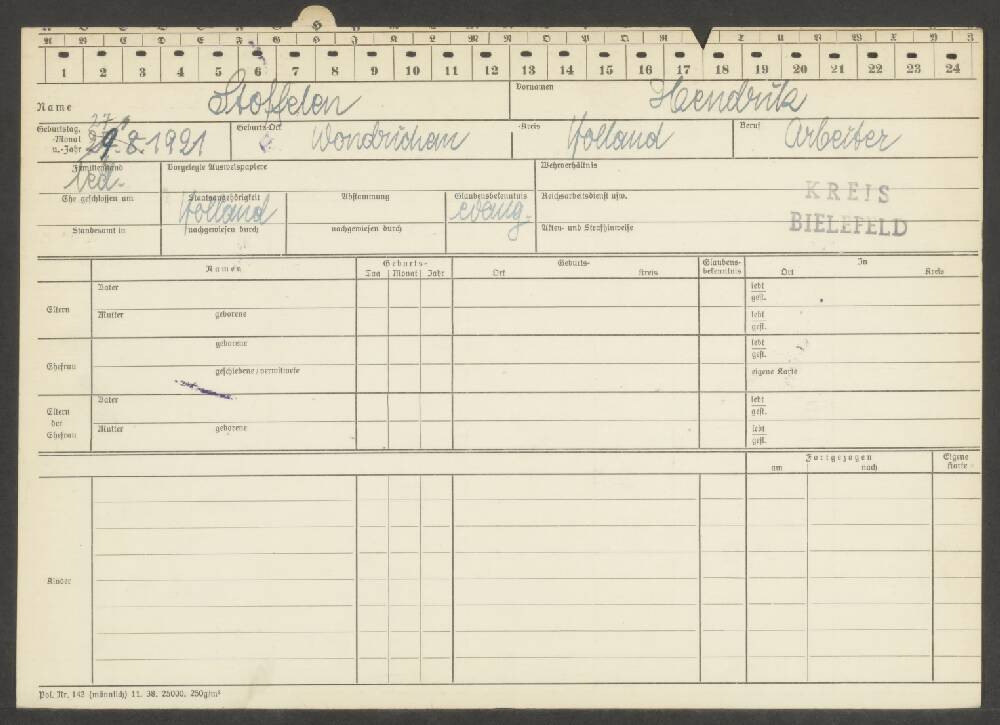 A B C D E F G H J K L M N O P Q R T U V W X Y Z
1 2 3 4 5 6 7 8 9 10 11 12 13 14 15 16 17 18 19 20 21 22 23 24
Name Stoffelen Vornamen Haendrük
Geburtstag, -Monat u.-Jahr 9.8.1921 Geburts-Ort Wondrichan -Kreis Holland Beruf Arbeiter
27.
Familienstand led. Vorgelegte Ausweispapiere Wehrverhältnis
Ehe geschlossen am Staatsangehörigkeit Holland Abstammung Glaubensbekenntnis evang. Reichsarbeitsdienst usw.
KREIS
BIELEFELD
Standesamt in nachgewiesen durch nachgewiesen durch Akten- und Strafhinweise
Namen Geburts- Geburts- Glaubens- In
Tag Monat Jahr Ort Kreis bekenntnis Ort Kreis
Eltern Vater lebt
gest.
Mutter geborene lebt
gest.
Ehefrau geborene lebt
gest.
geschiedene/verwitwete eigene Karte
Eltern der Ehefrau Vater lebt
gest.
Mutter geborene lebt
gest.
Fortgezogen Eigene
am nach Karte
Kinder
Pol. Nr. 142 (männlich) 11. 38. 25000. 250g/m²